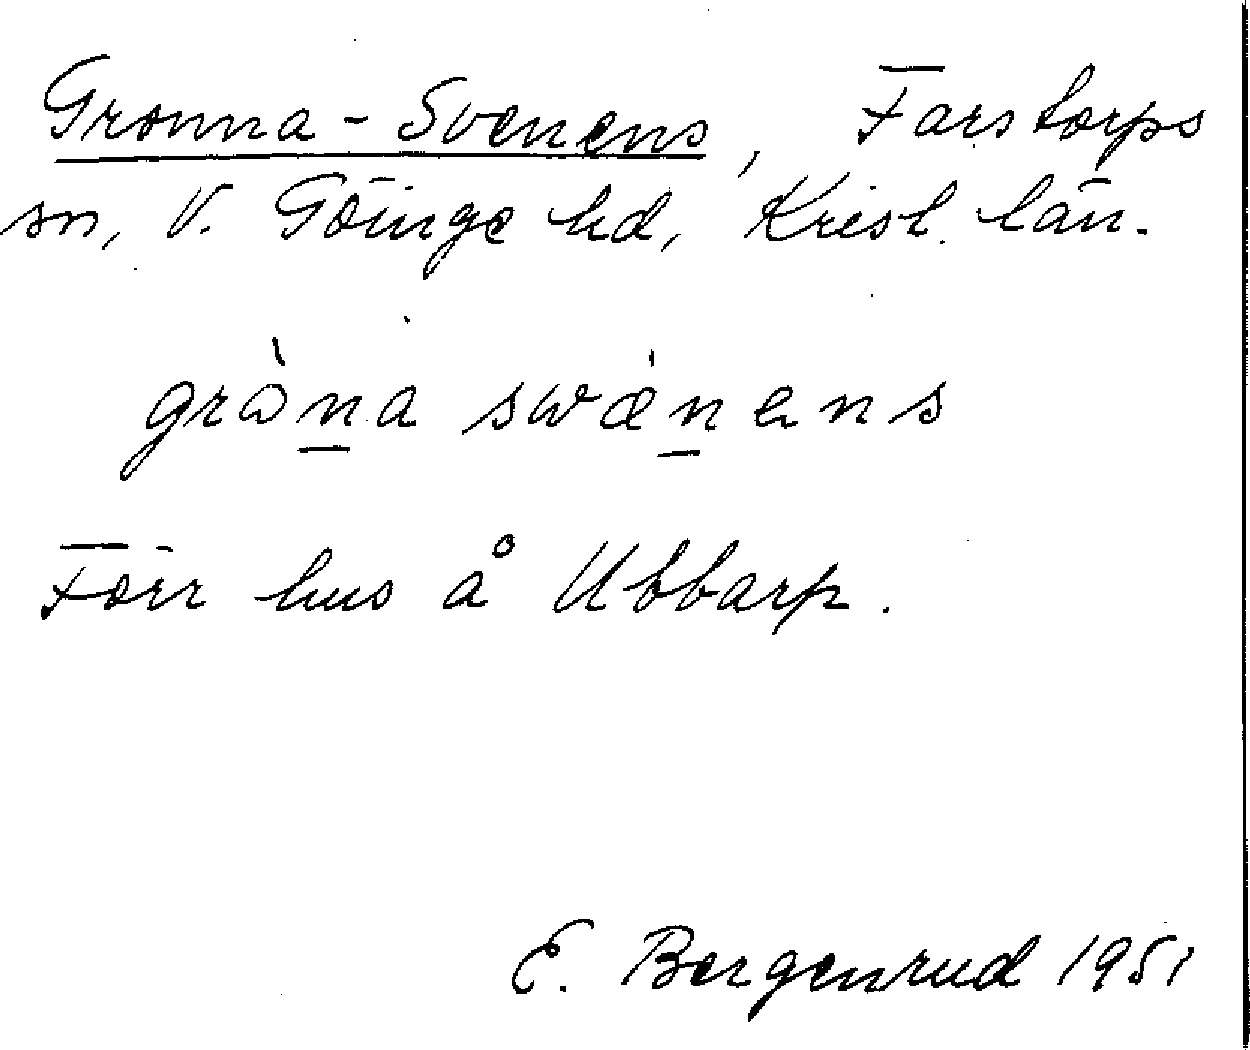 Gronna-Svenens, Farstorps
sn, V. Göinge hd, Krist. län.
gròna swænens
Förr hus å Ubbarp.
E. Bergenrud 1951